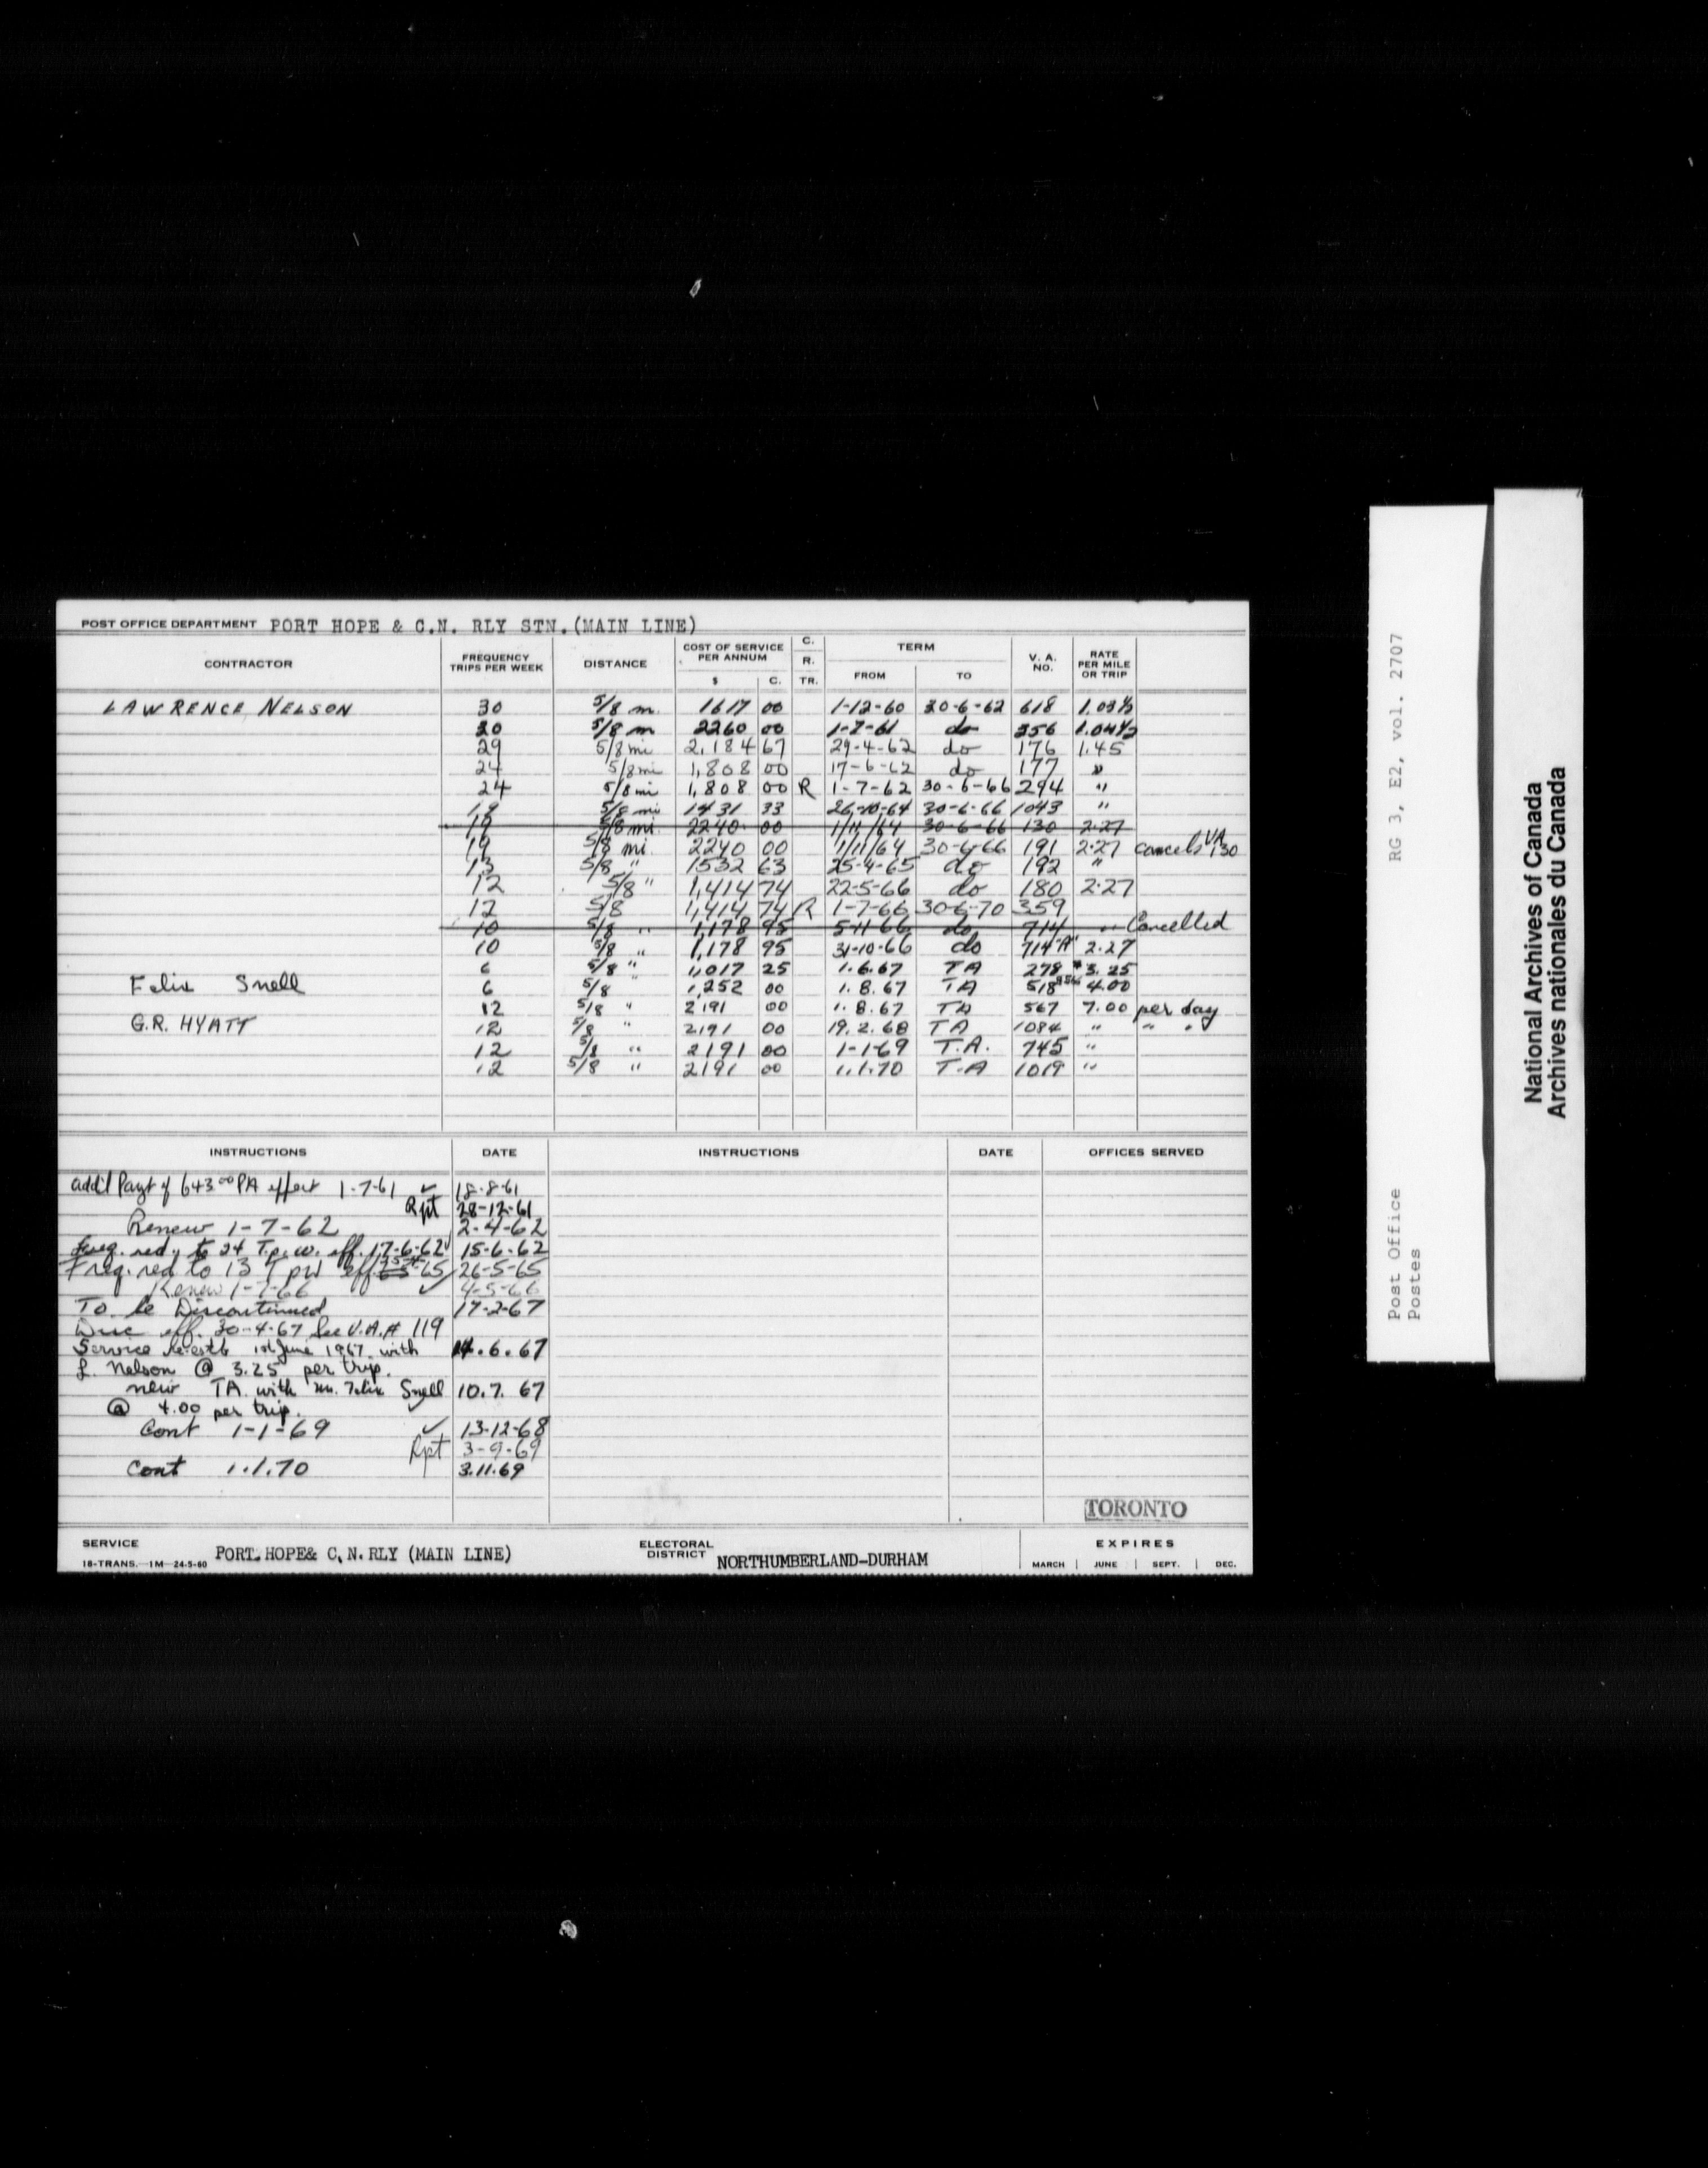 POST OFFICE DEPARTMENT PORT HOPE & C.N. RLY STN. (MAIN LINE)
CONTRACTOR FREQUENCY TRIPS PER WEEK DISTANCE COST OF SERVICE PER ANNUM $ C. C. R. TR. TERM FROM TO V. A. NO. RATE PER MILE OR TRIP
LAWRENCE NELSON 30 5/8 m. 1617 00 1-12-60 30-6-62 618 1.03⅓
30 5/8 m 2260 00 1-7-61 do 356
29 5/8 mi 2,184 67 29-4-62 do 176 1.45
24 5/8 mi 1,808 00 17-6-62 do 177 "
24 5/8 mi 1,808 00 R 1-7-62 30-6-66 294 "
19 5/8 mi 1431 33 26-10-64 30-6-66 1043 "
19 5/8 mi. 2240 00 1/11/64 30-6-66 130 2.27
19 5/8 mi. 2240 00 1/11/64 30-6-66 191 2.27 cancels VA 130
13 5/8 " 1532 63 25-4-65 do 192 "
12 5/8 " 1,414 74 22-5-66 do 180 2.27
12 5/8 1,414 74 R 1-7-66 30-6-70 359
10 5/8 " 1,178 95 5-11-66 do 714 " Cancelled
10 5/8 " 1,178 95 31-10-66 do 714 "A" 2.27
6 5/8 " 1,017 25 1.6.67 TA 278 3.25
Felix Snell 6 5/8 " 1,252 00 1.8.67 TA 518 4.00
12 5/8 " 2191 00 1.8.67 TA 567 7.00 per day
G.R. HYATT 12 5/8 " 2191 00 19.2.68 TA 1084 " " "
12 5/8 " 2191 00 1-1-69 T.A. 745 "
12 5/8 " 2191 00 1.1.70 T.A 1019 "
INSTRUCTIONS DATE INSTRUCTIONS DATE OFFICES SERVED
add'l Payt of 643.00 PA effect 1-7-61 ✓ 18-8-61
Rpt 28-12-61
Renew 1-7-62 2-4-62
Freq. red. to 24 T.p.w. eff. 17-6-62 ✓ 15-6-62
Freq. red to 13 T pw eff. 65 26-5-65
Renew 1-7-66 ✓ 4-5-66
To be Discontinued 17-2-67
Disc eff. 30-4-67 See V.A.# 119
Service re-estb 1st June 1967 with 14.6.67
L. Nelson @ 3.25 per trip.
new TA with Mr. Felix Snell 10.7.67
@ 4.00 per trip.
Cont 1-1-69 ✓ 13-12-68
Rpt 3-9-69
Cont 1.1.70 3.11.69
TORONTO
SERVICE PORT HOPE& C.N. RLY (MAIN LINE) ELECTORAL DISTRICT NORTHUMBERLAND-DURHAM EXPIRES
18-TRANS. 1M 24-5-60 MARCH JUNE SEPT. DEC.
Post Office RG 3, E2, vol. 2707
Postes
National Archives of Canada
Archives nationales du Canada